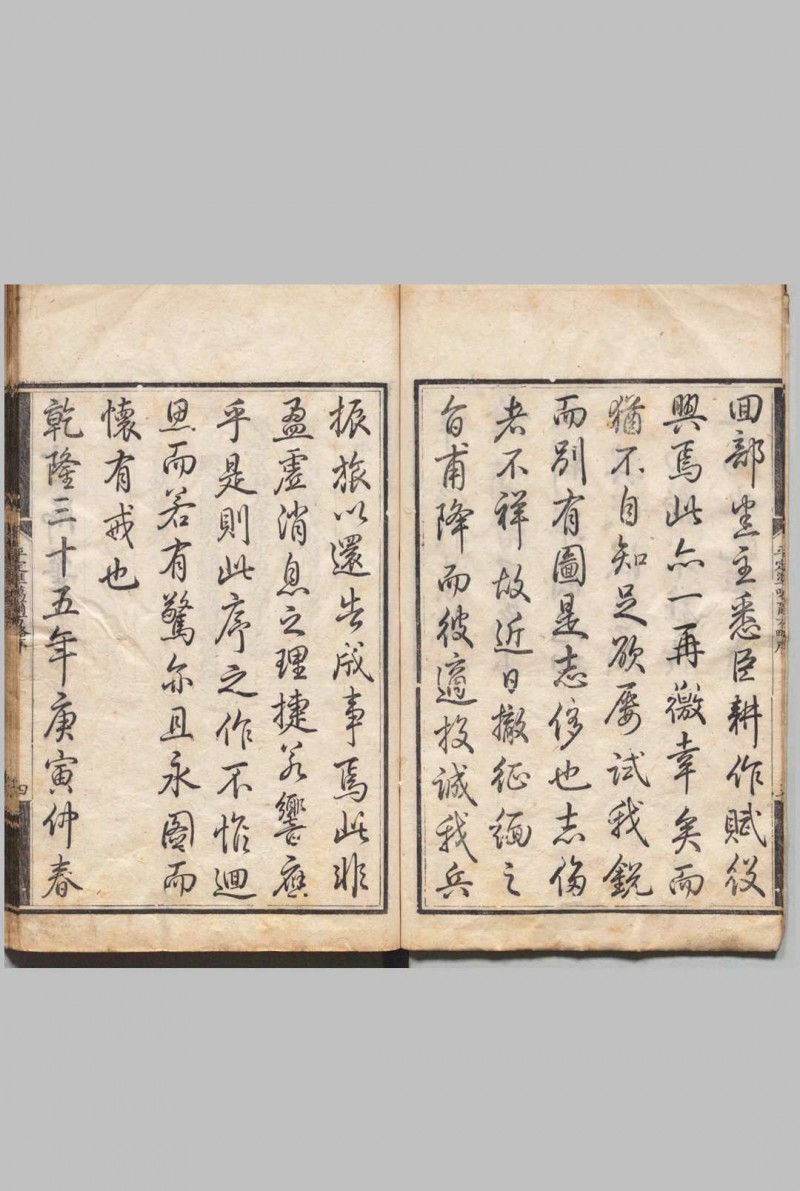 回部坐主悉臣耕作賦役
興焉此亦一再徼幸矣而
猶不自知足欲屢試我銳
而別有圖是志侈也志侈
者不祥故近日撤征緬之
旨甫降而彼適投誠我兵
振旅以還告成事焉此非
盈虛消息之理捷若響應
乎是則此序之作不惟迴
思而若有驚亦且永圖而
懷有戒也
乾隆三十五年庚寅仲春
平定準噶爾方略序
四